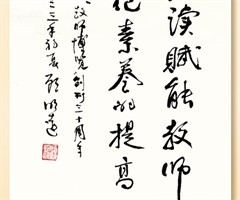 读赋能教师
化素养的提高
教师博览创刊三十周年
二三年初夏 顾明远